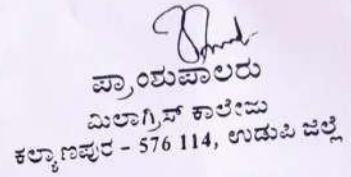 ಪ್ರಾಂಶುಪಾಲರು
ಮಿಲಾಗ್ರಿಸ್ ಕಾಲೇಜು
ಕಲ್ಯಾಣಪುರ - 576 114, ಉಡುಪಿ ಜಿಲ್ಲೆ